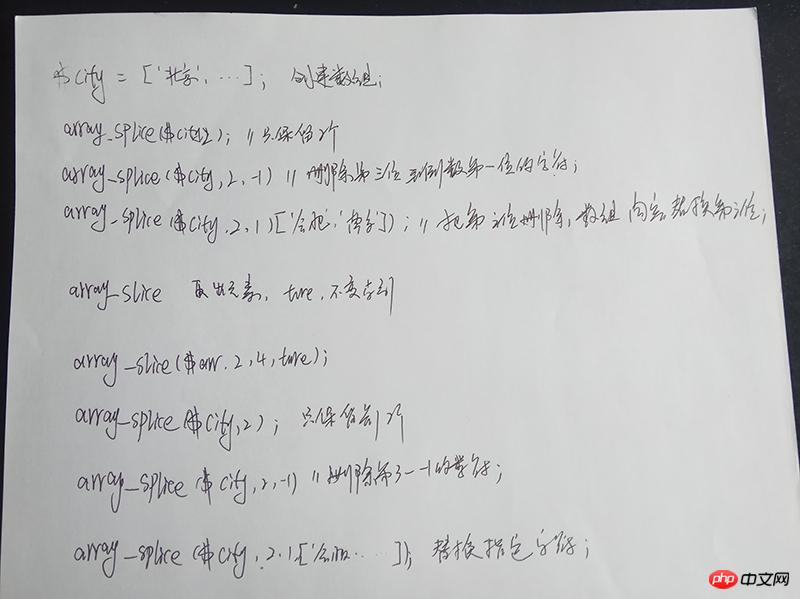 $city = ['北京', ...]; 创建数组;
array_splice($city,2); // 只保留2个
array_splice($city, 2, -1) // 删除第三位到倒数第一位的字符;
array_splice($city, 2, 1)['合肥', ']); // 把第三位删除, 数组内容替换第三位;
array_slice 取出元素, ture, 不变索引
array_slice($arr. 2, 4, ture);
array_splice($city, 2); 只保留前2个
array_splice($city, 2, -1) // 删除第3--1的字符;
array_splice($city, 2.1,['合肥.....]); 替换指定字符;
php 中文网